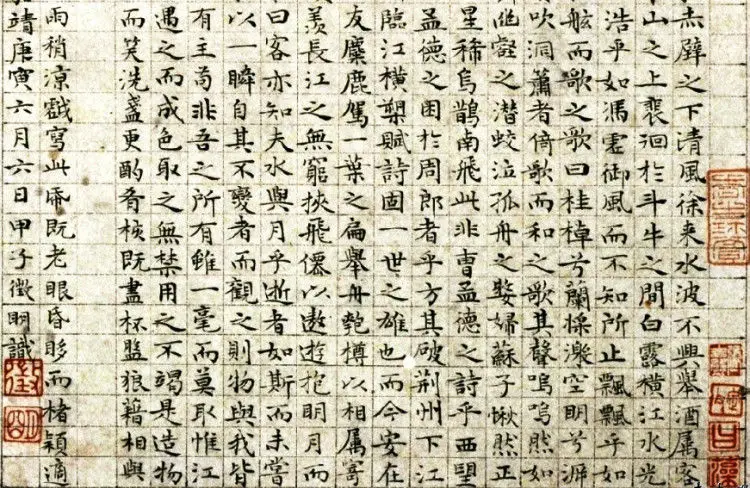 赤壁之下清風徐来水波不興舉酒属客
山之上裵徊於斗牛之間白露橫江水光
浩乎如馮虛御風而不知所止飄飄乎如
舷而歌之歌曰桂棹兮蘭槳擊空明兮泝
吹洞簫者倚歌而和之歌其聲嗚嗚然如
壑之潛蛟泣孤舟之嫠婦蘇子愀然正
星稀烏鵲南飛此非曹孟德之詩乎西望
孟德之困於周郎者乎方其破荆州下江
臨江橫槊賦詩固一世之雄也而今安在
友麋鹿駕一葉之扁舉舟匏樽以相属寄
羡長江之無窮挾飛僊以遨遊抱明月而
曰客亦知夫水與月乎逝者如斯而未嘗
以一瞬自其不變者而觀之則物與我皆
有主苟非吾之所有雖一毫而莫取惟江
遇之而成色取之無禁用之不竭是造物
而笑洗盞更酌肴核既盡杯盤狼藉相與
雨稍涼戲寫此帋既老眼昏眵而楮穎適
靖庚寅六月六日甲子徵明識
徵
明